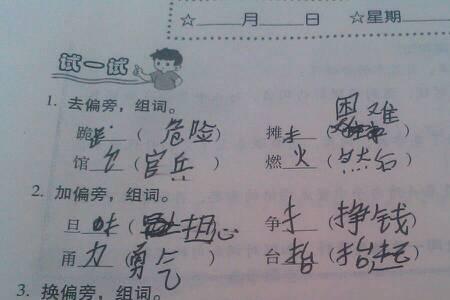 ☆____月____日 ☆星期____
试一试
1. 去偏旁，组词。
跪 ⻊ （危险） 摊 扌 （困难）
馆 饣 （官兵） 燃 火 （然后）
2. 加偏旁，组词。
旦 （担心） 争 扌 （挣钱）
甬 力 （勇气） 台 抬 （抬起）
3. 换偏旁，组词。